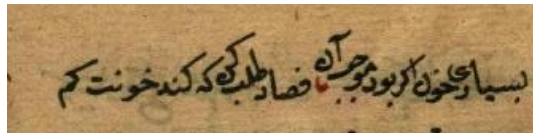 بسیاری خون اکر بود موجب آن فصاد طلب کن که کند خونت کم